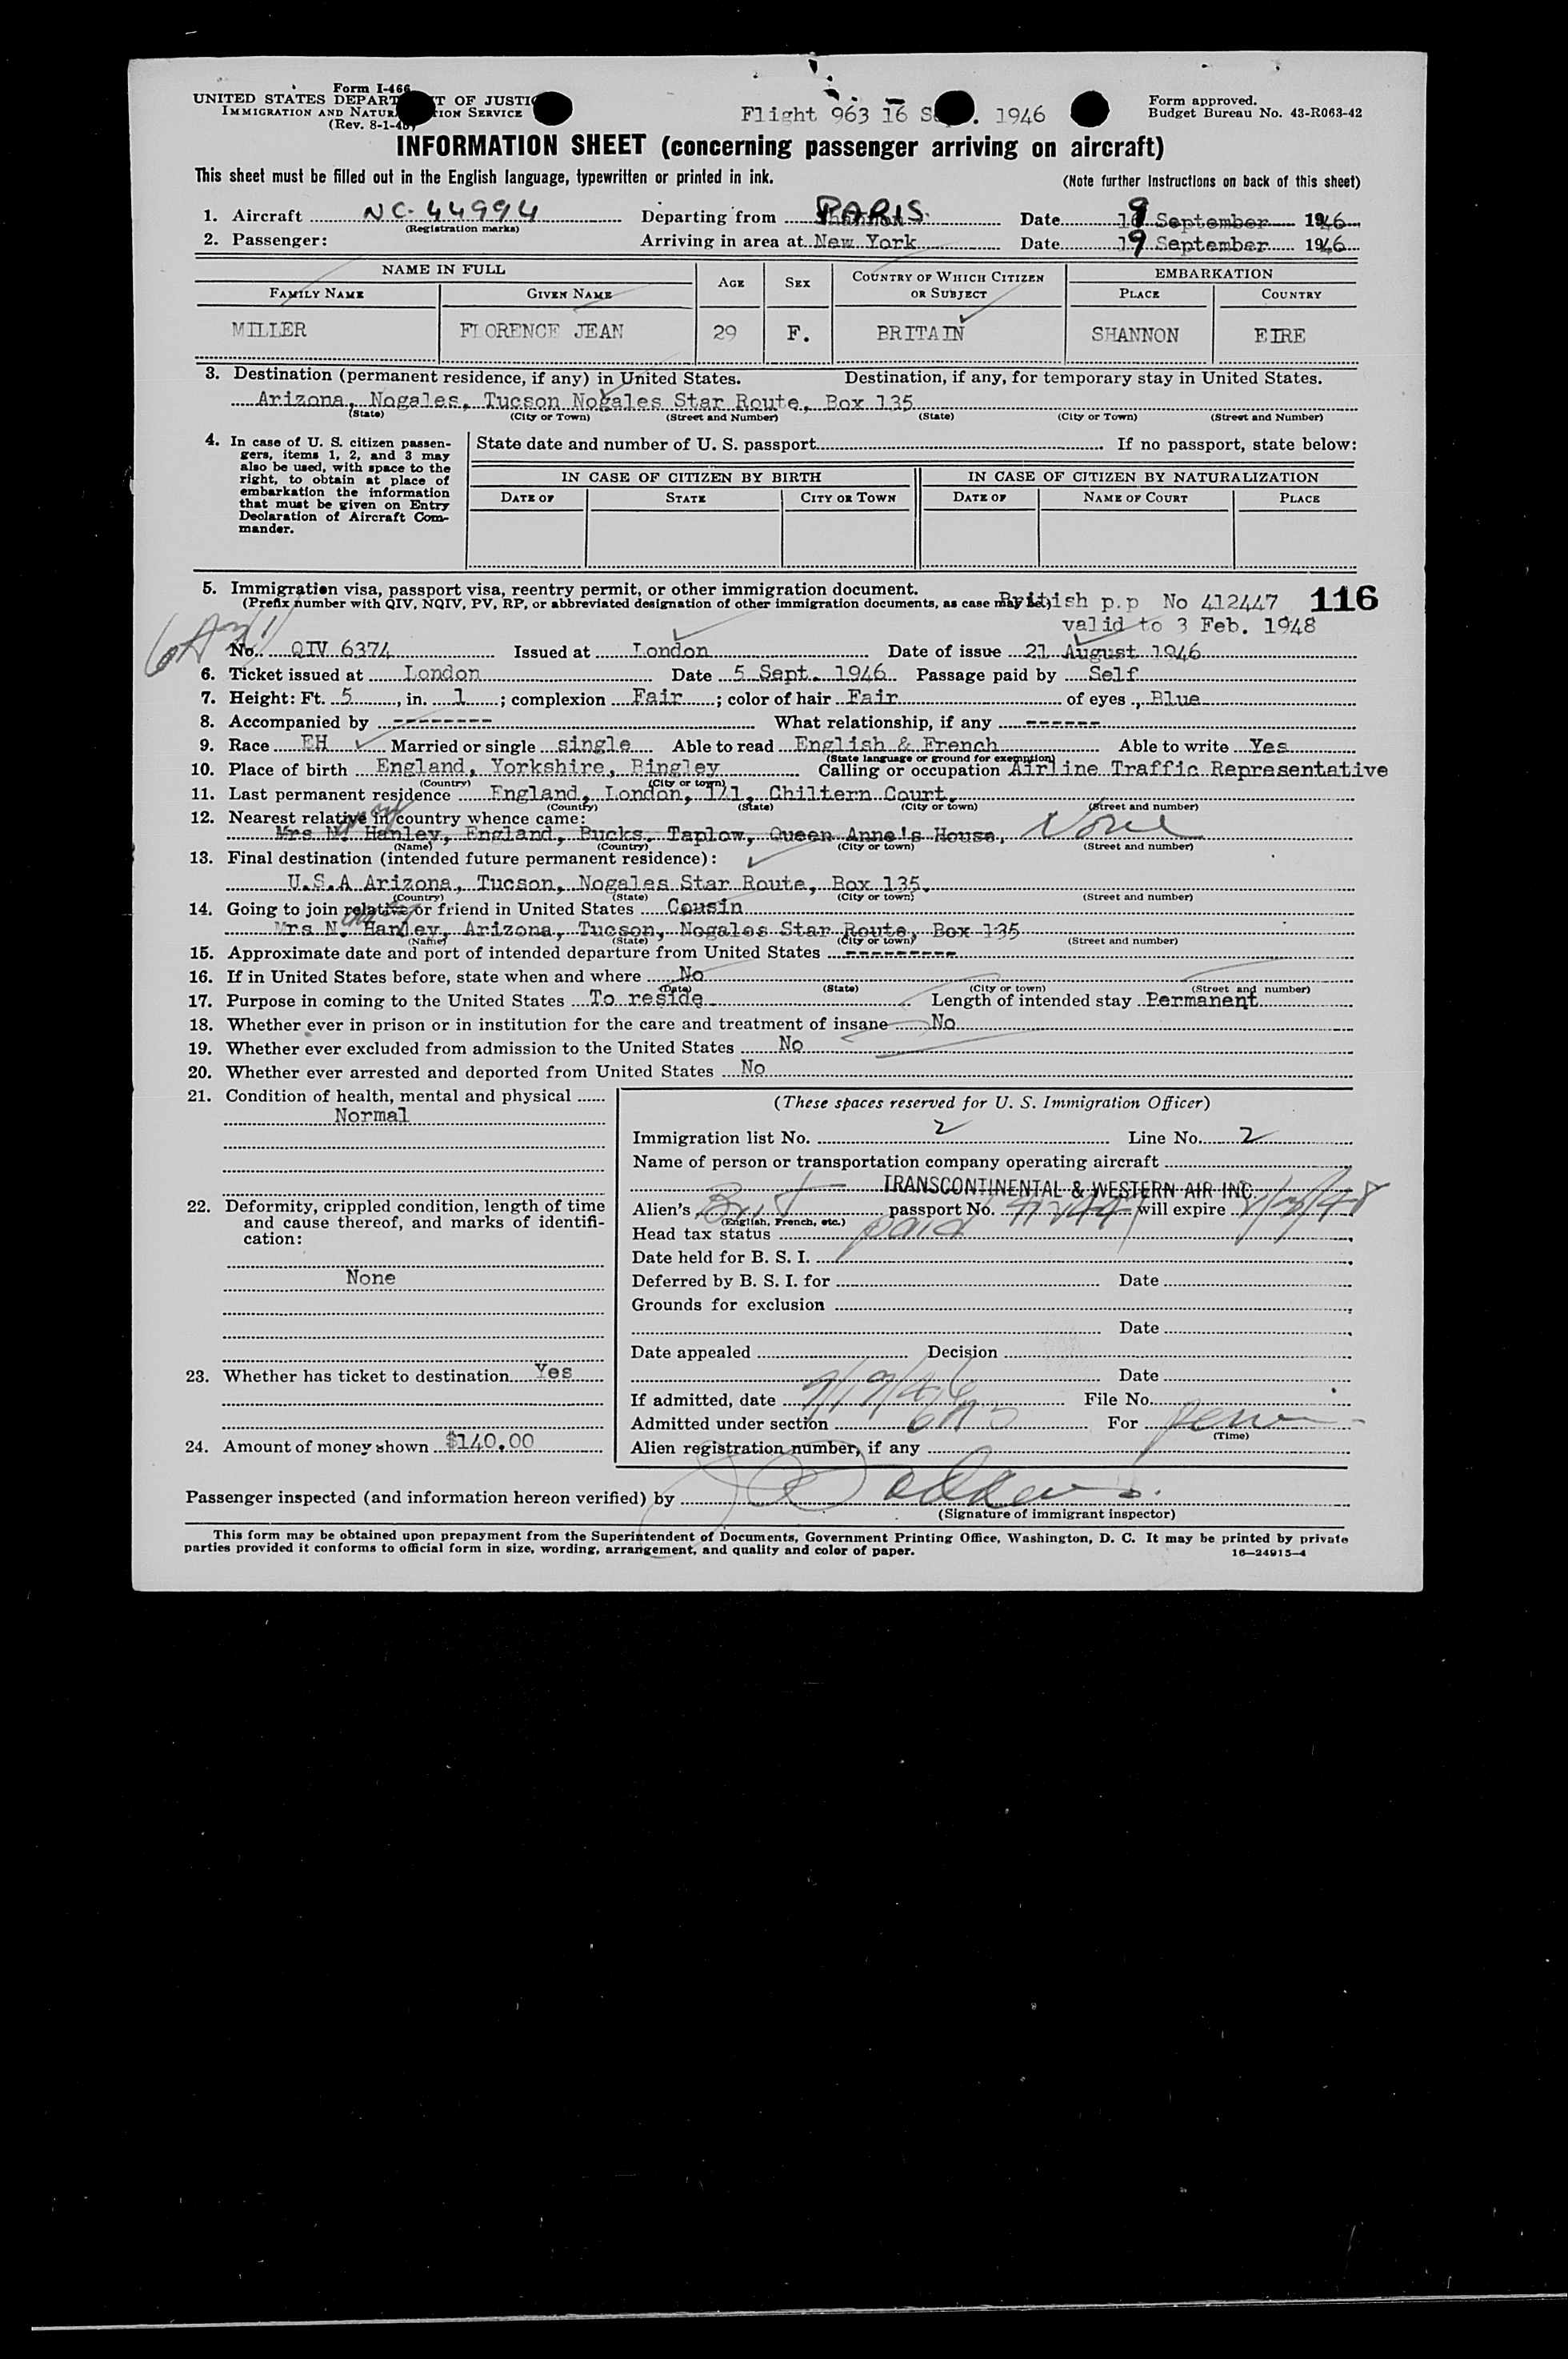 Form I-466
UNITED STATES DEPART T OF JUSTI
IMMIGRATION AND NATUR TION SERVICE
(Rev. 8-1-45)
Flight 963 16 S . 1946
Form approved.
Budget Bureau No. 43-R063-42
INFORMATION SHEET (concerning passenger arriving on aircraft)
This sheet must be filled out in the English language, typewritten or printed in ink.
(Note further instructions on back of this sheet)
1. Aircraft NC-44994 Departing from PARIS Date 19 September 1946
(Registration marks)
2. Passenger: Arriving in area at New York Date 19 September 1946
NAME IN FULL AGE SEX COUNTRY OF WHICH CITIZEN OR SUBJECT EMBARKATION
FAMILY NAME GIVEN NAME PLACE COUNTRY
MILLER FLORENCE JEAN 29 F. BRITAIN SHANNON EIRE
3. Destination (permanent residence, if any) in United States. Destination, if any, for temporary stay in United States.
Arizona, Nogales, Tucson Nogales Star Route, Box 135
(State) (City or Town) (Street and Number) (State) (City or Town) (Street and Number)
4. In case of U. S. citizen passen-
gers, items 1, 2, and 3 may
also be used, with space to the
right, to obtain at place of
embarkation the information
that must be given on Entry
Declaration of Aircraft Com-
mander.
State date and number of U. S. passport If no passport, state below:
IN CASE OF CITIZEN BY BIRTH IN CASE OF CITIZEN BY NATURALIZATION
DATE OF STATE CITY OR TOWN DATE OF NAME OF COURT PLACE
5. Immigration visa, passport visa, reentry permit, or other immigration document.
(Prefix number with QIV, NQIV, PV, RP, or abbreviated designation of other immigration documents, as case may be) British p.p No 412447 116
valid to 3 Feb. 1948
No. QIV 6374 Issued at London Date of issue 21 August 1946
6. Ticket issued at London Date 5 Sept. 1946 Passage paid by Self
7. Height: Ft. 5, in. 1; complexion Fair; color of hair Fair of eyes, Blue
8. Accompanied by -------- What relationship, if any ------
9. Race EH Married or single single Able to read English & French Able to write Yes
(State language or ground for exemption)
10. Place of birth England, Yorkshire, Bingley Calling or occupation Airline Traffic Representative
(Country) (City or town)
11. Last permanent residence England, London, 171, Chiltern Court.
(Country) (State) (City or town) (Street and number)
12. Nearest relative in country whence came:
Mrs N. Hanley, England, Bucks, Taplow, Queen Anne's House, None
(Name) (Country) (City or town) (Street and number)
13. Final destination (intended future permanent residence):
U.S.A Arizona, Tucson, Nogales Star Route, Box 135.
(Country) (State) (City or town) (Street and number)
14. Going to join relative or friend in United States Cousin
Mrs N. Hanley, Arizona, Tucson, Nogales Star Route, Box 135
(Name) (State) (City or town) (Street and number)
15. Approximate date and port of intended departure from United States ---------
16. If in United States before, state when and where No
(Date) (State) (City or town) (Street and number)
17. Purpose in coming to the United States To reside Length of intended stay Permanent
18. Whether ever in prison or in institution for the care and treatment of insane No
19. Whether ever excluded from admission to the United States No
20. Whether ever arrested and deported from United States No
21. Condition of health, mental and physical
Normal
22. Deformity, crippled condition, length of time
and cause thereof, and marks of identifi-
cation:
None
23. Whether has ticket to destination Yes
24. Amount of money shown $140.00
(These spaces reserved for U. S. Immigration Officer)
Immigration list No. 2 Line No. 2
Name of person or transportation company operating aircraft
TRANSCONTINENTAL & WESTERN AIR INC.
Alien's Brit passport No. 412447 will expire 2/3/48
(English, French, etc.)
Head tax status paid
Date held for B. S. I.
Deferred by B. S. I. for Date
Grounds for exclusion
Date
Date appealed Decision
Date
If admitted, date 9/19/46 File No.
Admitted under section 6A3 For Perm
(Time)
Alien registration number, if any
Passenger inspected (and information hereon verified) by
(Signature of immigrant inspector)
This form may be obtained upon prepayment from the Superintendent of Documents, Government Printing Office, Washington, D. C. It may be printed by private
parties provided it conforms to official form in size, wording, arrangement, and quality and color of paper. 16—24915-4